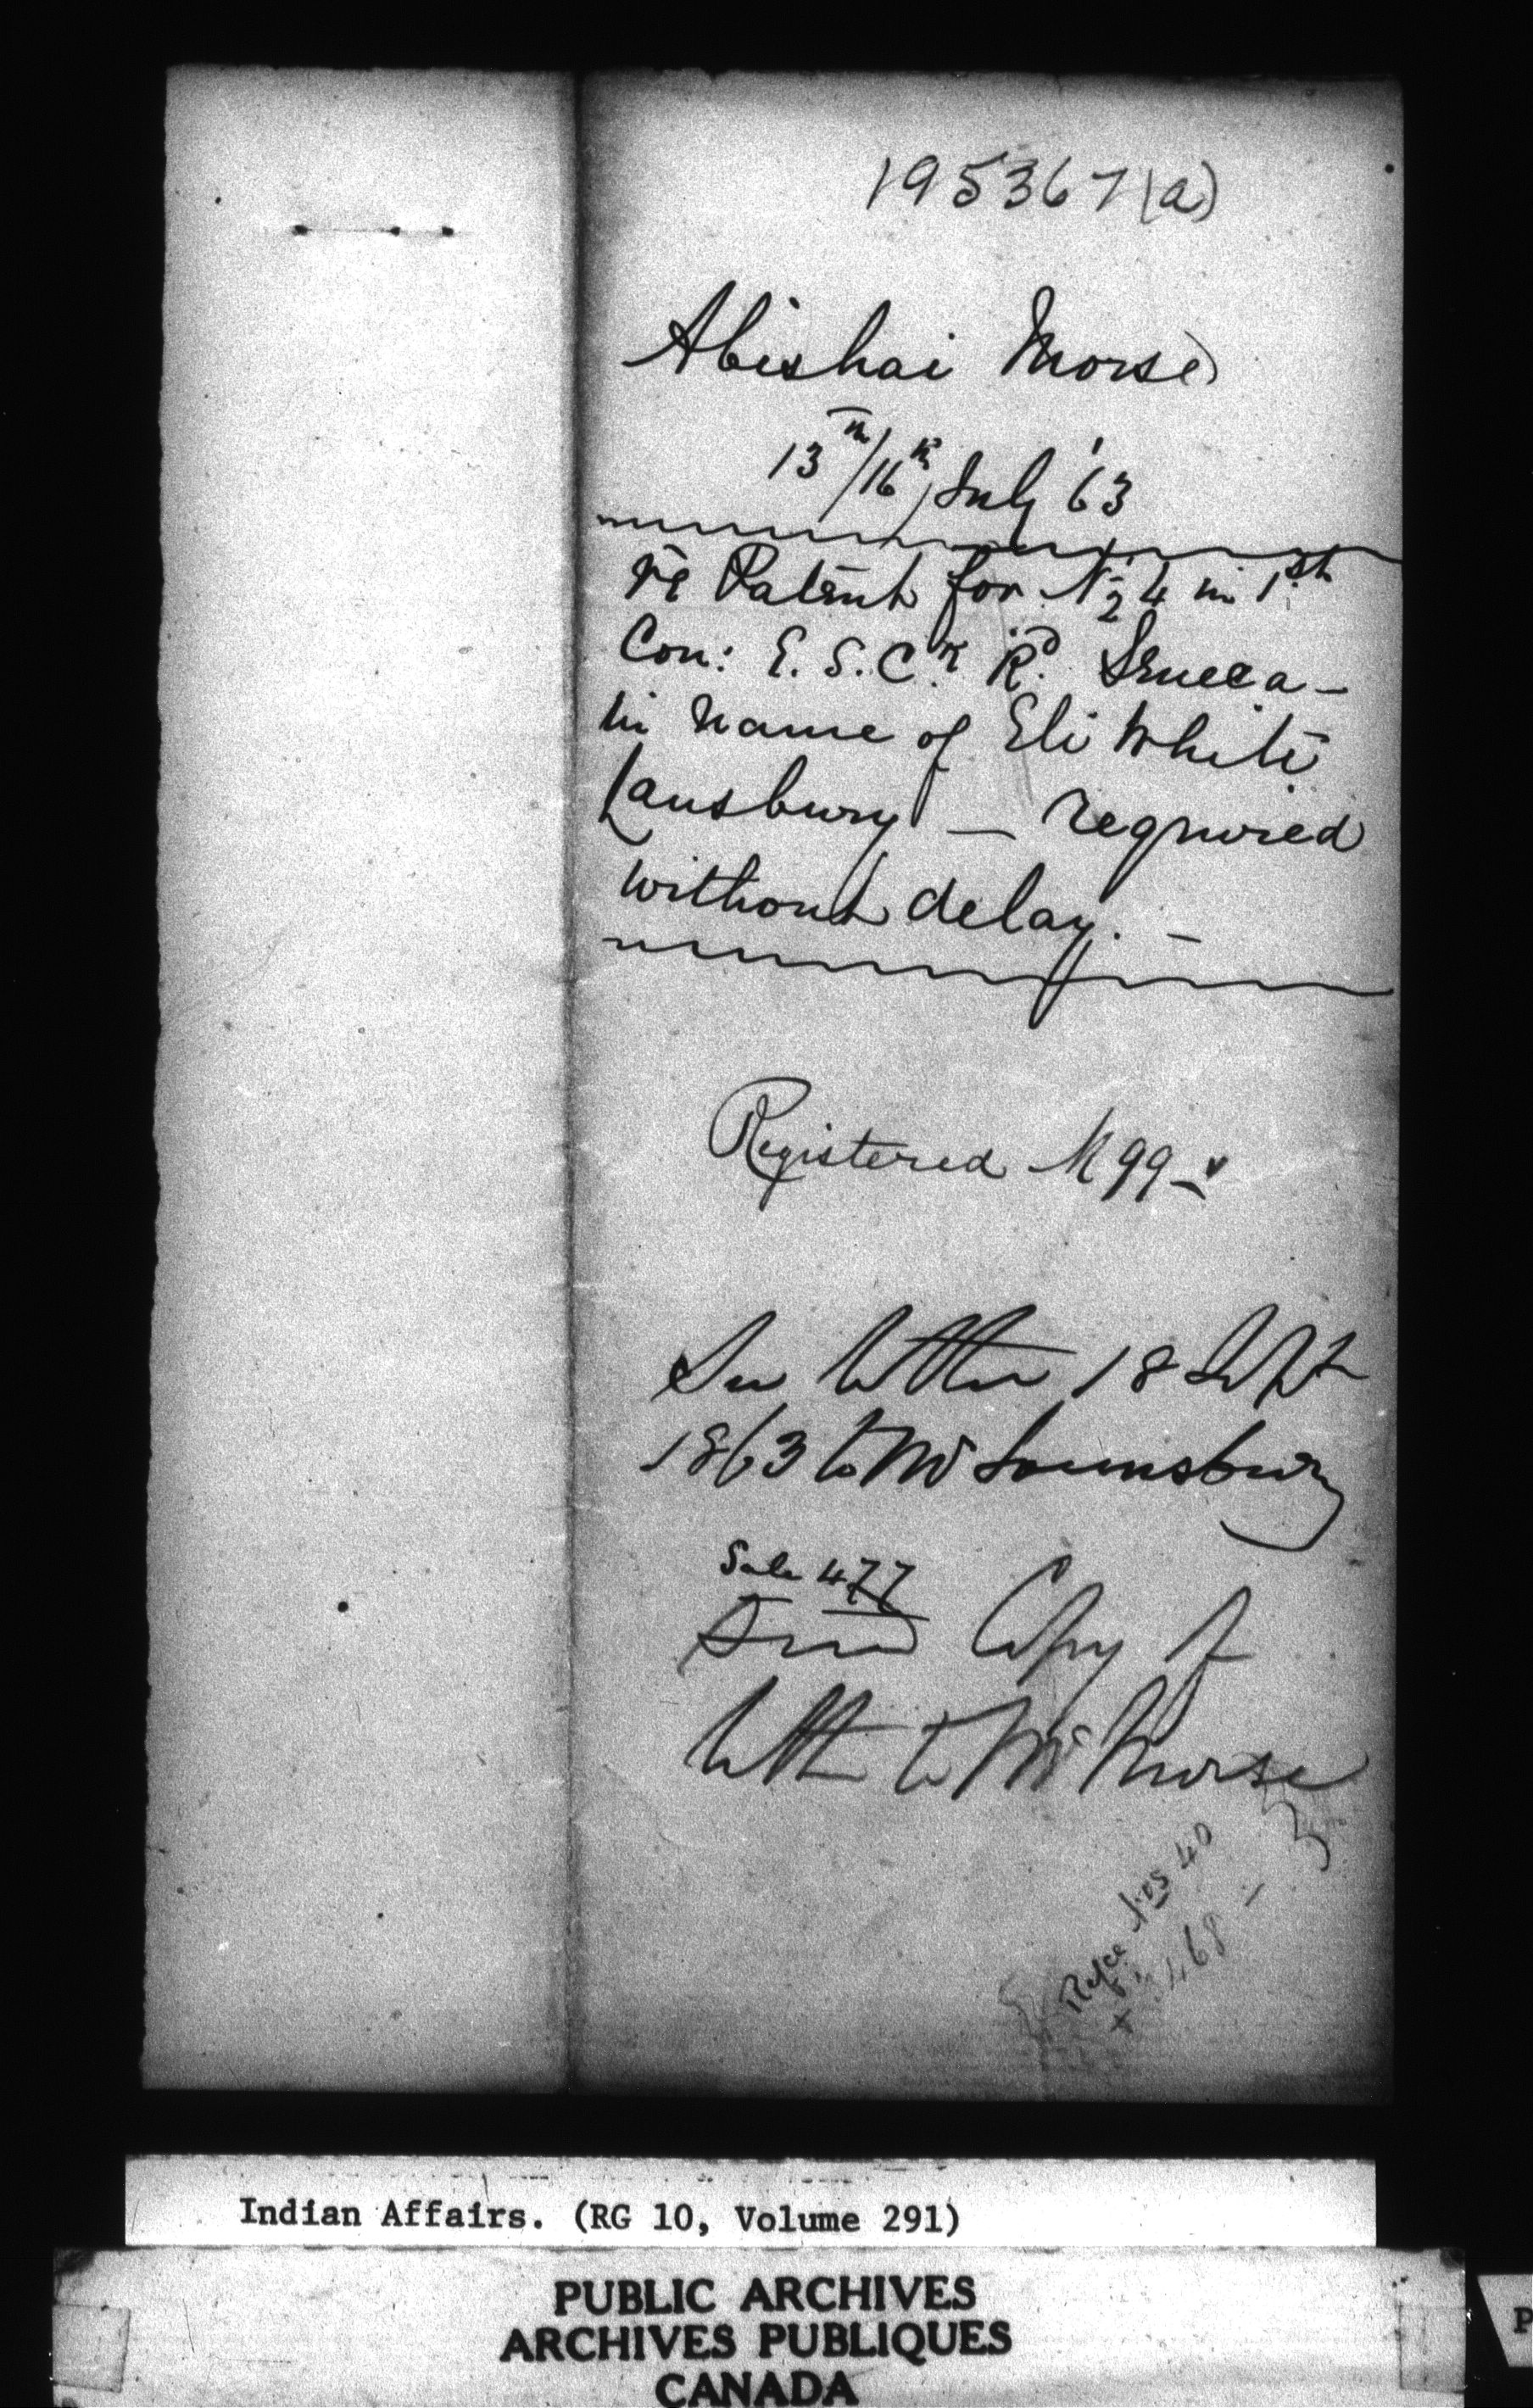 195367(a)
Abishai Morse
13th/16th July '63
re Patent for N ½ 4 in 1st
Con: E. S. C.k R.d Seneca –
in name of Eli White
Lansbury — required
without delay. –
Registered M 99 –
See letter 18 Sept
1863 to Mr Lounsbury
Sale 477
Send Copy of
letter to Mr Morse
Refce Nos 40
+ 468 –
Indian Affairs. (RG 10, Volume 291)
PUBLIC ARCHIVES
ARCHIVES PUBLIQUES
CANADA